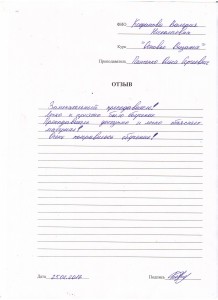 ФИО: Кодинова Валерия
Николаевна
Курс "Основы Визажа"
Преподаватель: Юлия Сергеевна
ОТЗЫВ
Замечательный преподаватель!
Легко и приятно было обучение
Преподаватель доступно и легко объясняет
материал!
Очень понравилось обучение!
Дата Подпись